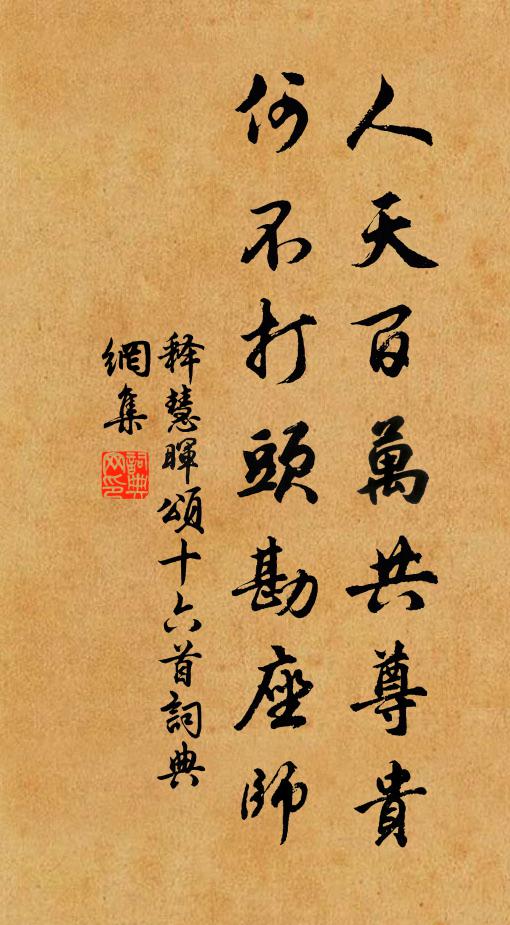 人天百萬共尊貴
何不打頭勘座師
释慧暉頌十六首詞典
網集
詞典
网印